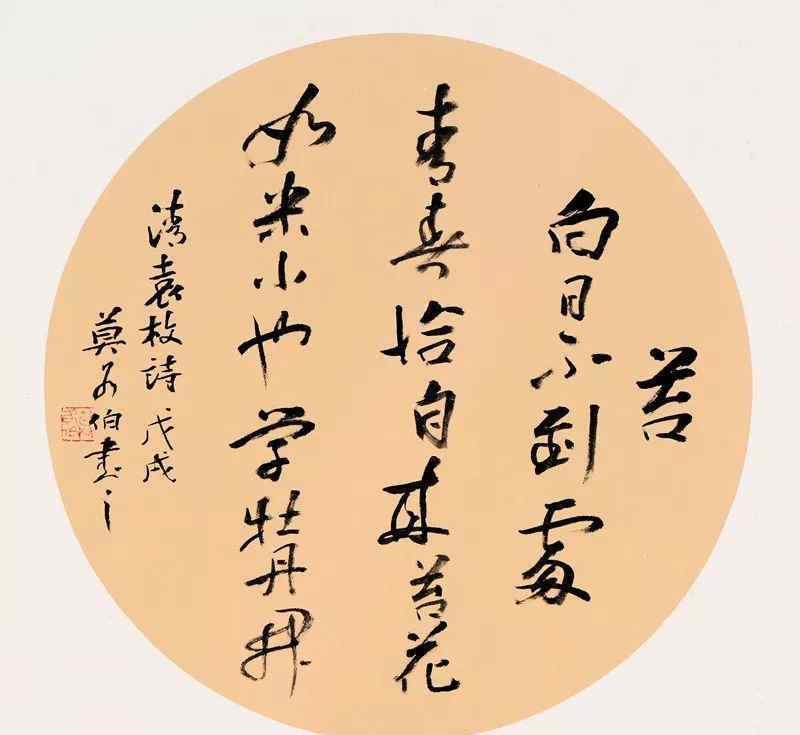 苔
白日不到處
青春恰自来苔花
如米小也学牡丹開
清袁枚詩戊戌
莫伯書之